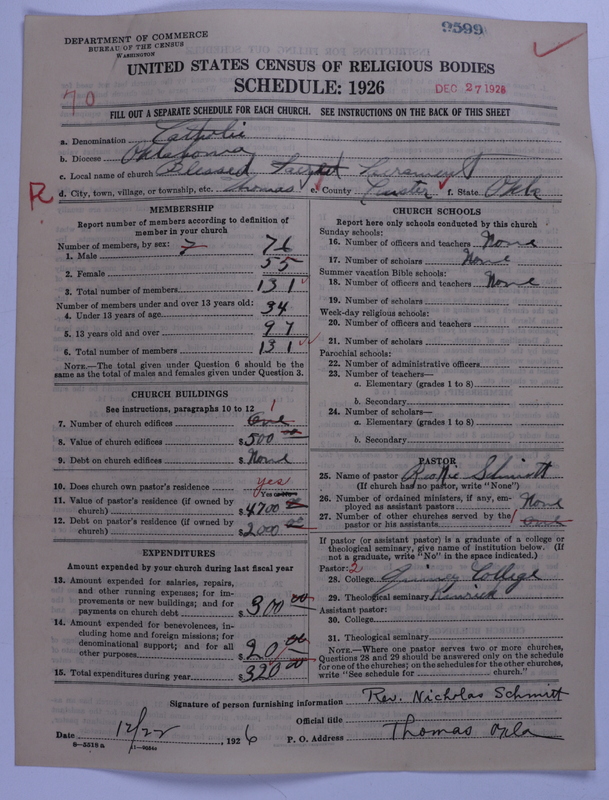 9599
DEPARTMENT OF COMMERCE
BUREAU OF THE CENSUS
WASHINGTON
UNITED STATES CENSUS OF RELIGIOUS BODIES
SCHEDULE: 1926
DEC 27 1926
70
FILL OUT A SEPARATE SCHEDULE FOR EACH CHURCH. SEE INSTRUCTIONS ON THE BACK OF THIS SHEET
a. Denomination Catholic
b. Diocese Oklahoma
c. Local name of church Blessed Sacrament
R d. City, town, village, or township, etc. Thomas e. County Custer f. State Okla
MEMBERSHIP
Report number of members according to definition of
member in your church
Number of members, by sex:
1. Male 76
2. Female 55
3. Total number of members 131
Number of members under and over 13 years old:
4. Under 13 years of age 34
5. 13 years old and over 97
6. Total number of members 131
NOTE.—The total given under Question 6 should be
same as the total of males and females given under Question 3.
CHURCH BUILDINGS
See instructions, paragraphs 10 to 12
7. Number of church edifices One 1
8. Value of church edifices $500
9. Debt on church edifices $None
10. Does church own pastor's residence yes
Yes or No
11. Value of pastor's residence (if owned by
church) $4700
12. Debt on pastor's residence (if owned by
church) $2000
EXPENDITURES
Amount expended by your church during last fiscal year
13. Amount expended for salaries, repairs,
and other running expenses; for im-
provements or new buildings; and for
payments on church debt $300.00
14. Amount expended for benevolences, in-
cluding home and foreign missions; for
denominational support; and for all
other purposes $20.00
15. Total expenditures during year $320.00
CHURCH SCHOOLS
Report here only schools conducted by this church
Sunday schools:
16. Number of officers and teachers None
17. Number of scholars None
Summer vacation Bible schools:
18. Number of officers and teachers None
19. Number of scholars
Week-day religious schools:
20. Number of officers and teachers
21. Number of scholars
Parochial schools:
22. Number of administrative officers
23. Number of teachers—
a. Elementary (grades 1 to 8)
b. Secondary
24. Number of scholars—
a. Elementary (grades 1 to 8)
b. Secondary
PASTOR
25. Name of pastor Schmitt
(If church has no pastor, write "None")
26. Number of ordained ministers, if any, em-
ployed as assistant pastors None
27. Number of other churches served by the
pastor or his assistants 1 One
If pastor (or assistant pastor) is a graduate of a college or
theological seminary, give name of institution below. (If
not a graduate, write "No" in the space indicated.)
Pastor: 2
28. College Quincy College
29. Theological seminary Kenrick
Assistant pastor:
30. College
31. Theological seminary
NOTE.—Where one pastor serves two or more churches,
Questions 28 and 29 should be answered only on the schedule
for one of the churches; on the schedules for the other churches,
write "See schedule for church."
Signature of person furnishing information Rev. Nicholas Schmitt
Official title
Date 12/22, 1926 P. O. Address Thomas Okla
8-5518 a